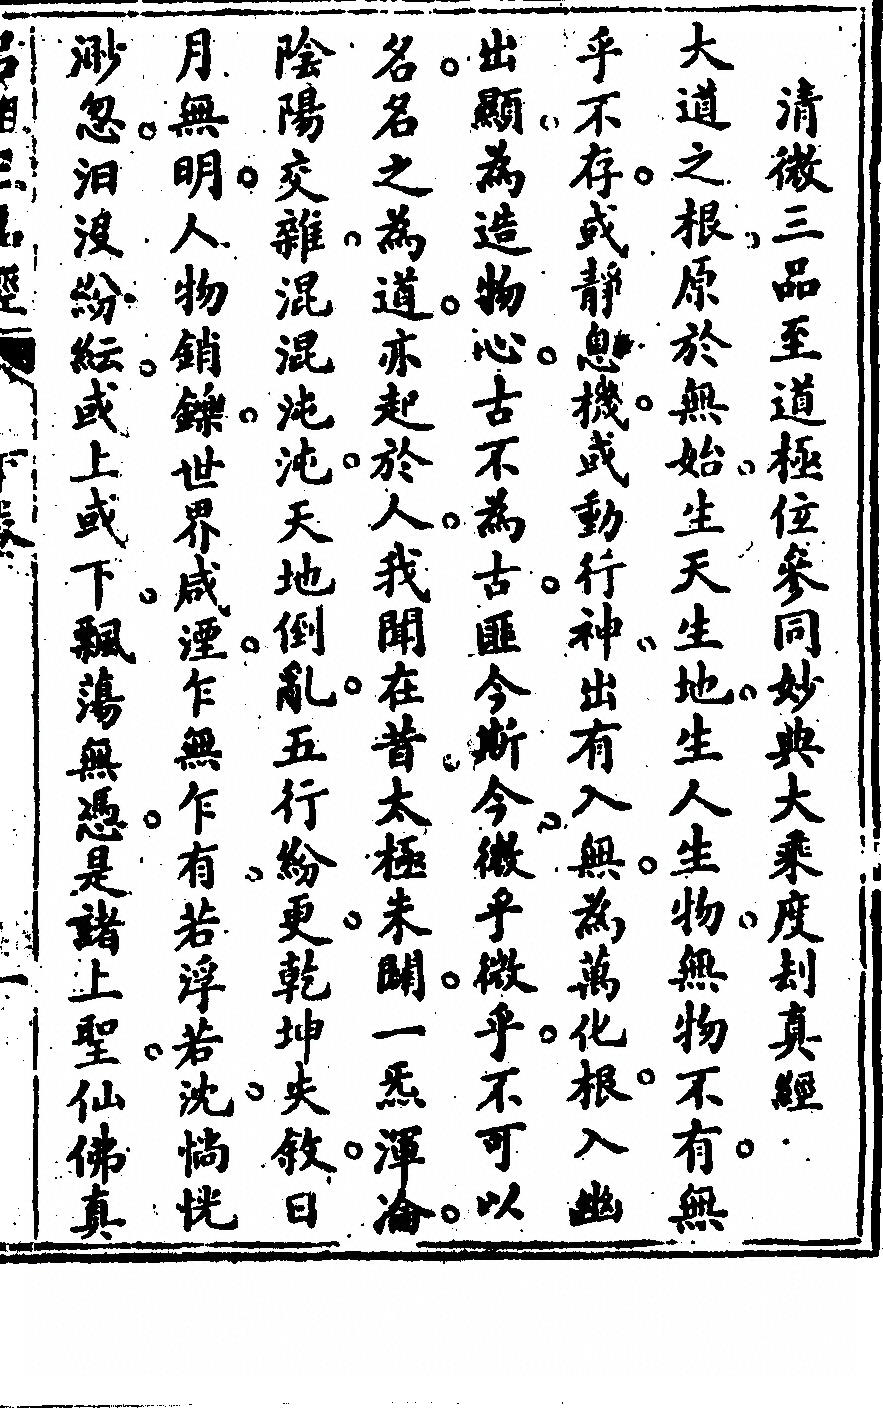 清微三品至道極位參同妙典大乘度刦真經
大道之根原於無始生天生地生人生物無物不有無
乎不存或靜息機或動行神出有入無為萬化根入幽
出顯為造物心古不為古匪今斯今微乎微乎不可以
名名之為道亦起於人我聞在昔太極未闢一炁渾淪
陰陽交雜混混沌沌天地倒亂五行紛更乾坤失敘日
月無明人物銷鑠世界咸湮乍無乍有若浮若沈惝恍
渺忽汨沒紛紜或上或下飄蕩無憑是諸上聖仙佛真